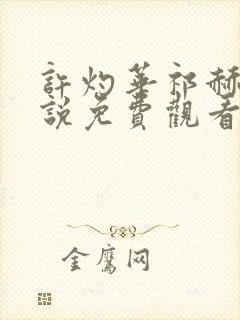 許灼華祁赫
說免費觀看
金鷹网